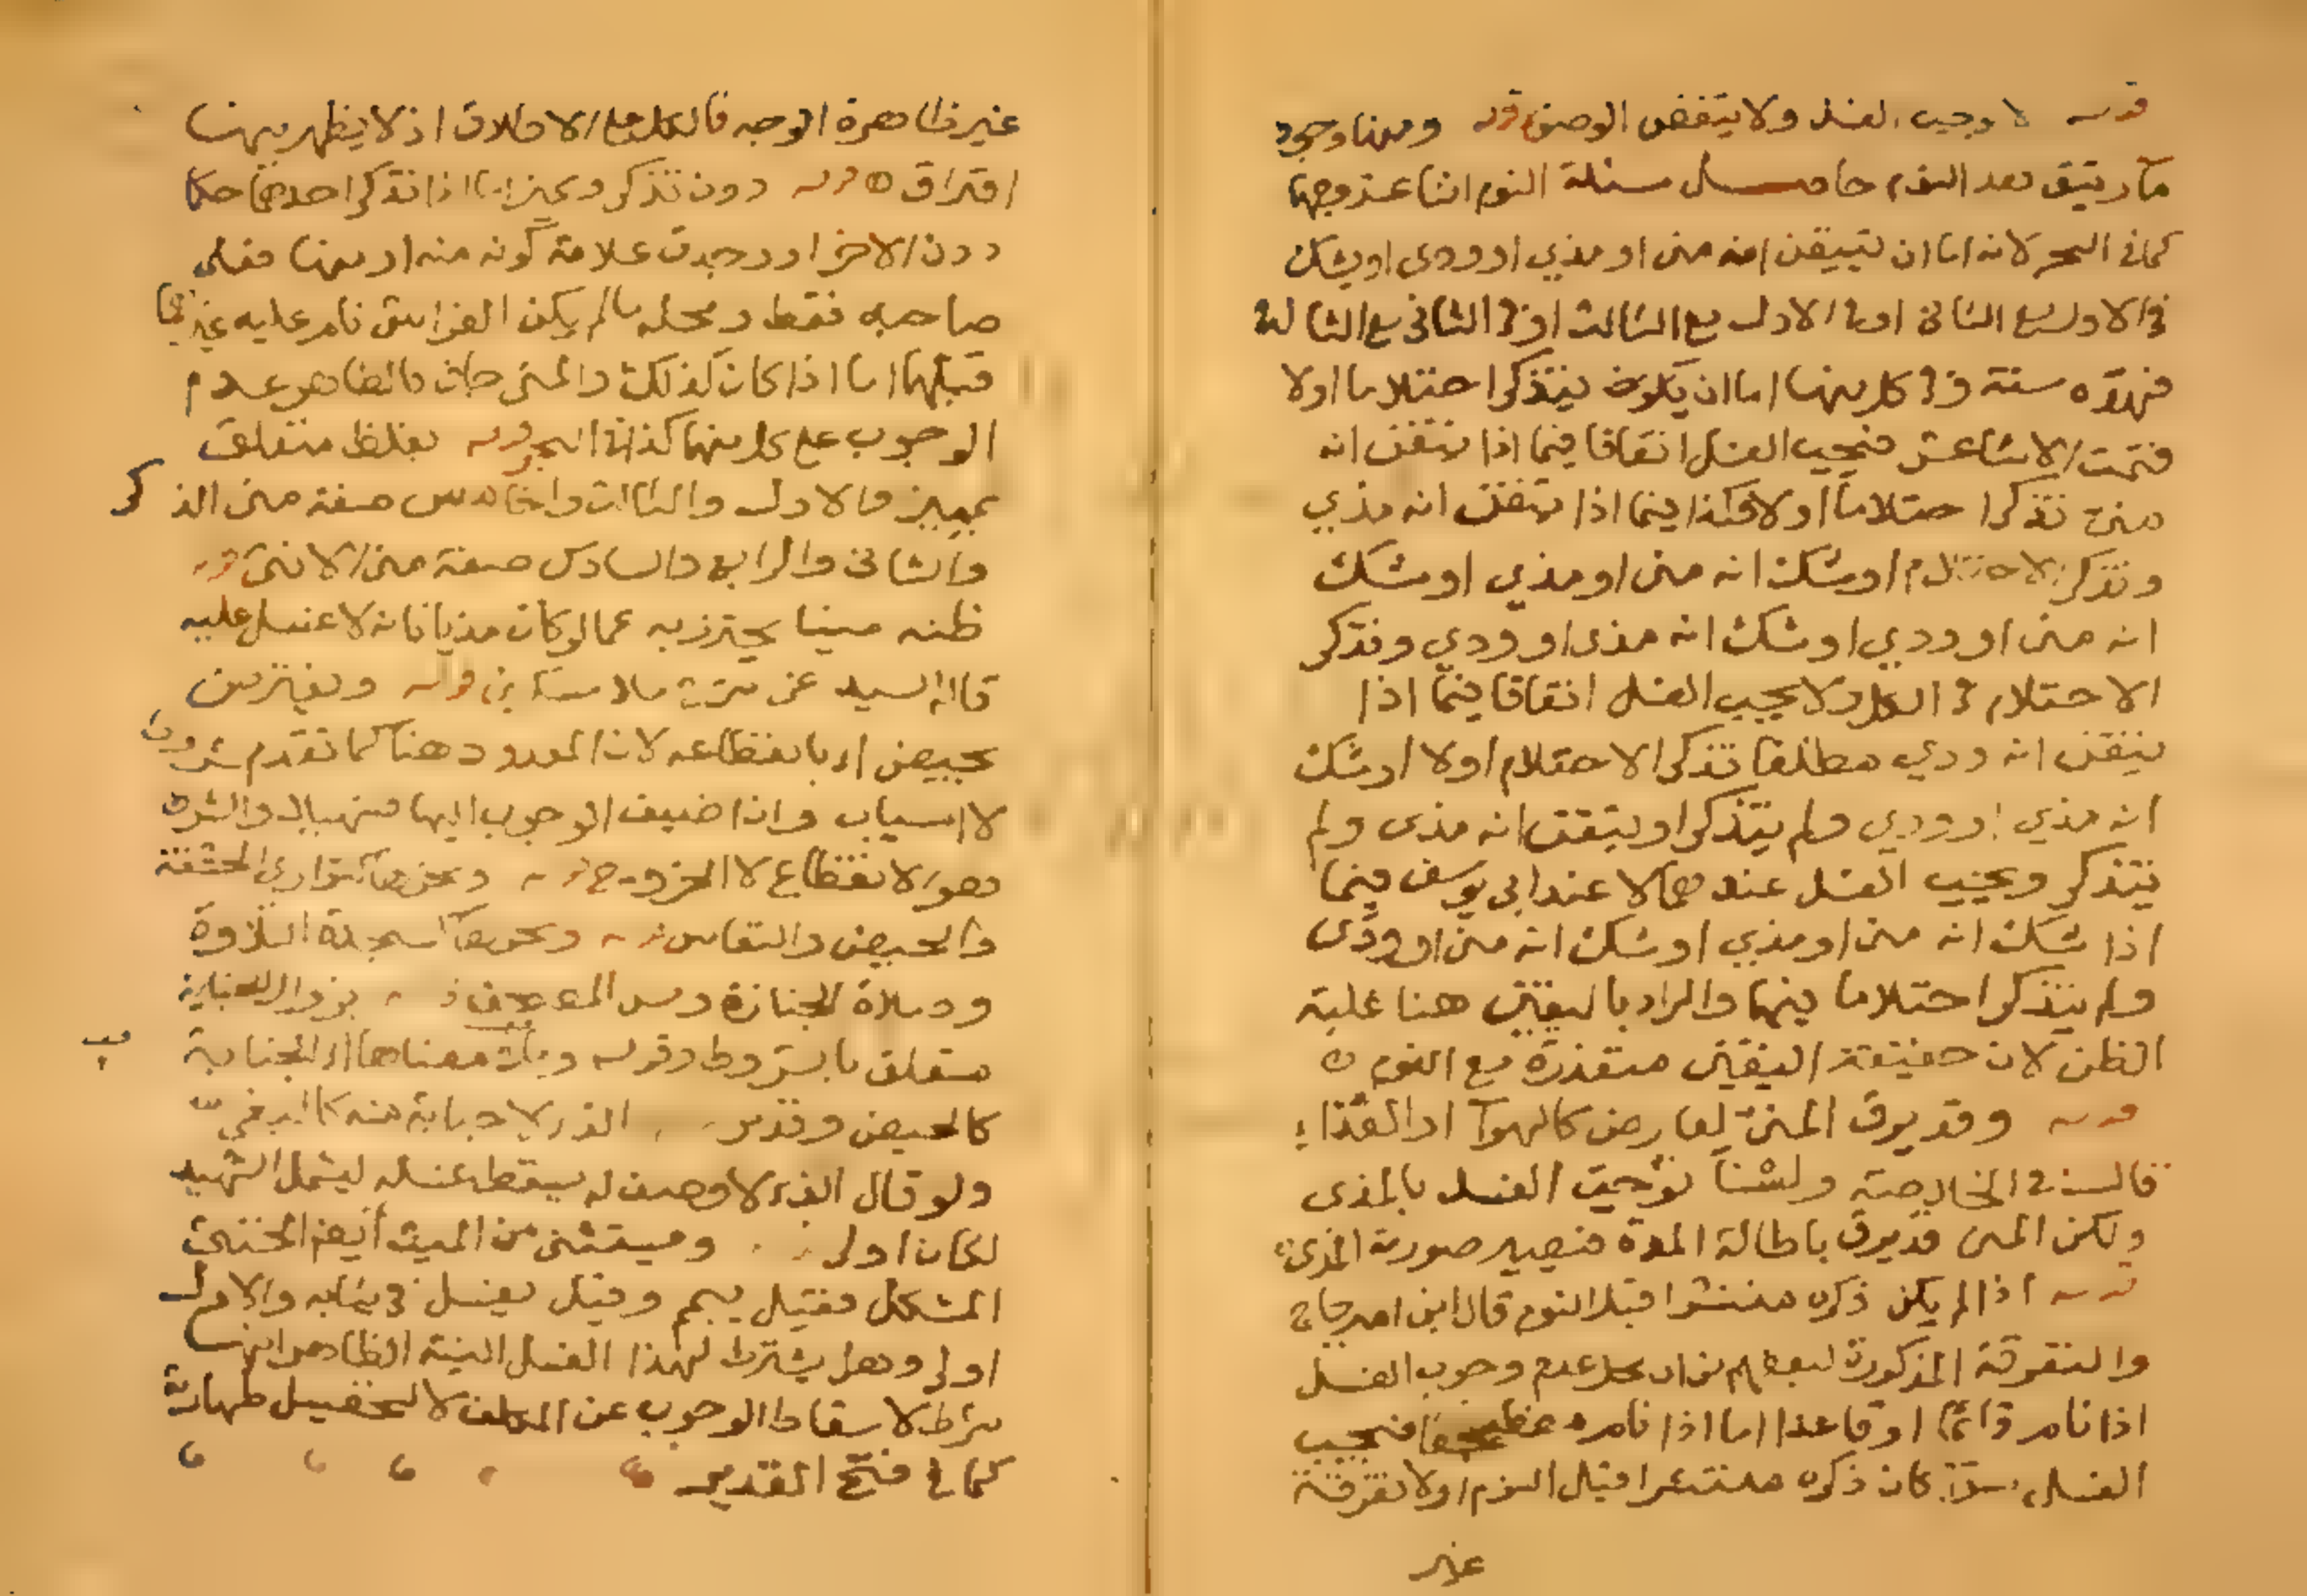 قوله لا وجيب الغسل ولا ينقض الوصو قوله ومنها وجود
ماء رقيق بعد النوم حاصل مسئلة النوم اثنا عشر وجها
كما في البحر لانه اما ان يتيقن انه منى او مذي او ودى او يشك
في الاول مع الثانى او في الاول مع الثالث او في الثانى مع الثالث
فهذه ستة وفي كل منها اما ان يكون يتذكر احتلاما اولا
فتمت الاثنا عشر فيجب الغسل اتفاقا فيما اذا تيقن انه
منى تذكر احتلاما اولا وكذا فيما اذا تيقن انه مذي
وتذكر الاحتلام او شك انه منى او مذي او شك
انه منى او ودي او شك انه مذى او ودي وتذكر
الاحتلام في الكل ولا يجب الغسل اتفاقا فيما اذا
تيقن انه ودي مطلقا تذكر الاحتلام اولا او شك
انه مذي او ودي ولم يتذكر او يتيقن انه مذى ولم
يتذكر ويجب الغسل عندهما لا عند ابى يوسف فيما
اذا شك انه منى او مذي او شك انه منى او ودى
ولم يتذكر احتلاما فيهما والمراد باليقين هنا غلبة
الظن لان حقيقة اليقين متعذرة مع النوم
قوله وقد يرق المنى لعارض كالهوآ او الغذاء
قال في الخلاصة ولسنا نوجب الغسل بالمذى
ولكن المنى قد يرق باطالة المدة فتصير صورته المذى
قوله اذا لم يكن ذكره منتشرا قبل النوم قال ابن امير حاج
والتفرقة المذكورة لبعضهم عدم وجوب الغسل
اذا نام قائما او قاعدا اما اذا نام مضطجعا فيجب
الغسل سوآ كان ذكره منتشرا قبل النوم اولا تفرقة
غير
غير ظاهرة الوجه فالكل على الاطلاق اذ لا يظهر بينهما
افتراق قوله دون تذكر ومميز اما اذا تذكر احدهما حكما
دون الاخر او وجدت علامة كونه منه او منها فعلى
صاحبه فقط ومحله ما لم يكن الفراش نام عليه غيرهما
قبلهما اما اذا كان كذلك والمنى جاف فالظاهر عدم
الوجوب على كل منهما كذا في البحر قوله بغلظ متعلق
بمميز فالاول والثالث والخامس صفة منى الذكر
والثانى والرابع والسادس صفة منى الانثى قوله
ظنه منيا يحترز به عما لو كان مذيا فانه لا غسل عليه
قاله السيد عن شرح ملا مسكين قوله ويفترض
بحيض اى بانقطاعه لان المعدود هنا كما تقدم شروط
لا اسباب واذا اضيف الوجوب اليها والشرط
هو الانقطاع لا الخروج قوله ونحوها كتوارى الحشفة
والحيض والنفاس قوله ونحوها كسجدة التلاوة
وصلاة الجنازة ومس المصحف قوله بزوال الجنابة
متعلق بالشروط وقوله معناها اى الجنابة
كالحيض وقوله الذى لا جنابة منه كما لا يخفى
ولو قال الذى لا وصف له يسقط غسله ليشمل الشهيد
لكان اولى ويستثنى من الميت ايضا الخنثى
المشكل فقيل ييمم وقيل يغسل في ثيابه والاول
اولى وهل يشترط لهذا الغسل النية الظاهر انها
شرط لاسقاط الوجوب عن المكلف لا لتحصيل طهارته
كما في فتح القدير